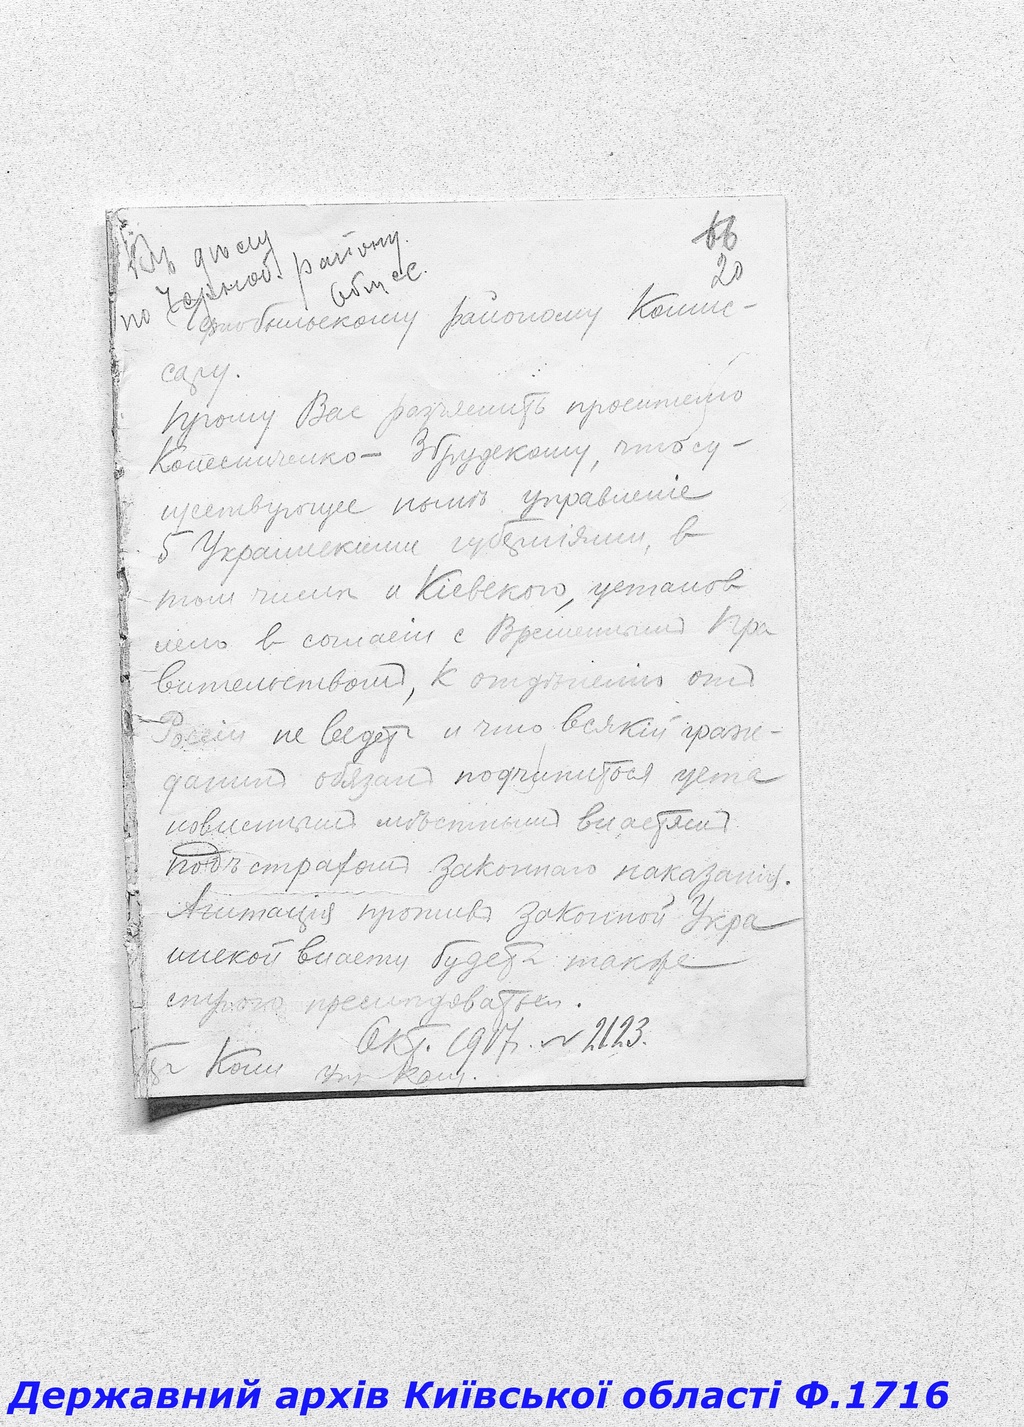 Къ дѣлу
по Черноб. району.
66
20
Чернобыльскому районому Комис-
сару.
Прошу Вас разъяснить просителю
Колесниченко- Збрудскому, что су-
ществующее нынѣ управленіе
5 Украинскими губерніями, в
том числѣ и Кіевского, установ
лено в согласіи с Временным Пра
вительством, к отдѣленію от
Россіи не ведетъ и что всякій граж-
данин обязан подчиниться уста
новленным мѣстным властям
подъ страхом законнаго наказанія.
Агитація против законной Укра
инской власти будетъ также
строго преслѣдоваться.
Окт. 1917 г. N 2123.
Ком